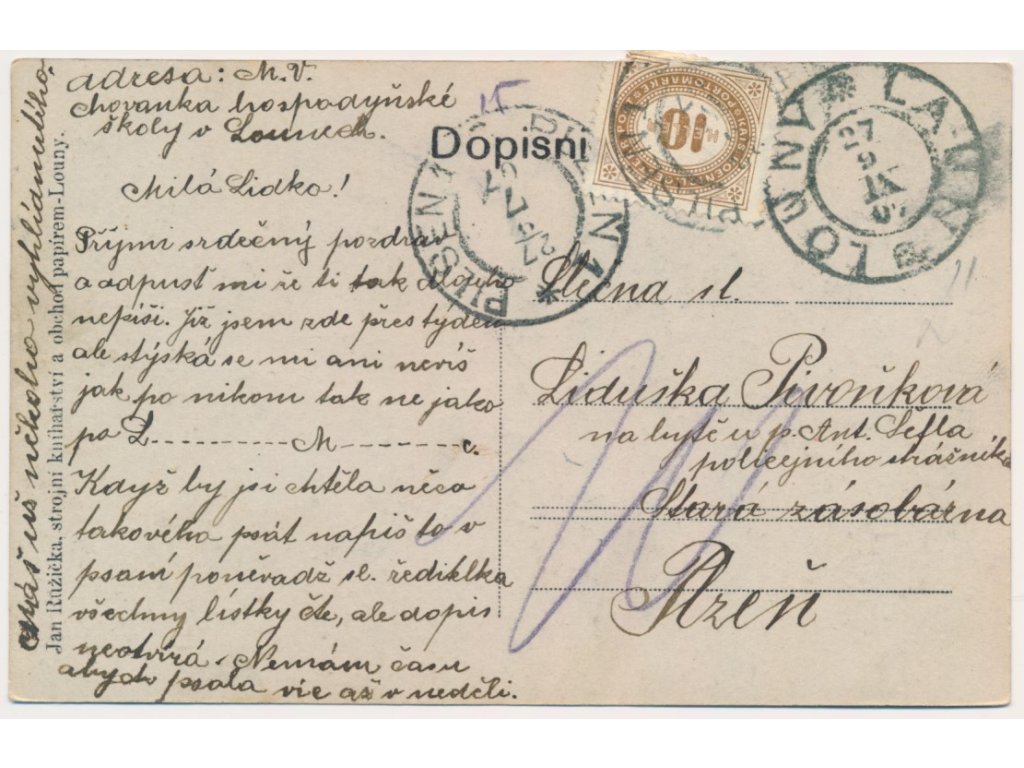 adresa: M. V.
chovanka hospodyňské
školy v Lounech.
Milá Lidko!
Přijmi srdečný pozdrav
a odpusť mi že ti tak dlouho
nepíši. Již jsem zde přes týden
ale stýská se mi ani nevíš
jak po nikom tak ne jako
po L---------- M-------c.
Když by jsi chtěla něco
takového psát napiš to v
psaní poněvadž sl. ředitelka
všechny lístky čte, ale dopis
neotvírá. Nemám času
abych psala víc až v neděli.
máš už někoho vyhlídnutého.
Jan Růžička, strojní knihařství a obchod papírem-Louny.
Dopisni
15
10
PORTOMARKE
LOUNY
LAUN
27
PILSEN 1
PLZEŇ 1
Slečna sl.
Liduška Pivoňková
na bytě u p. Ant. Šefla
policejního strážníka
Stará zásobárna
Plzeň